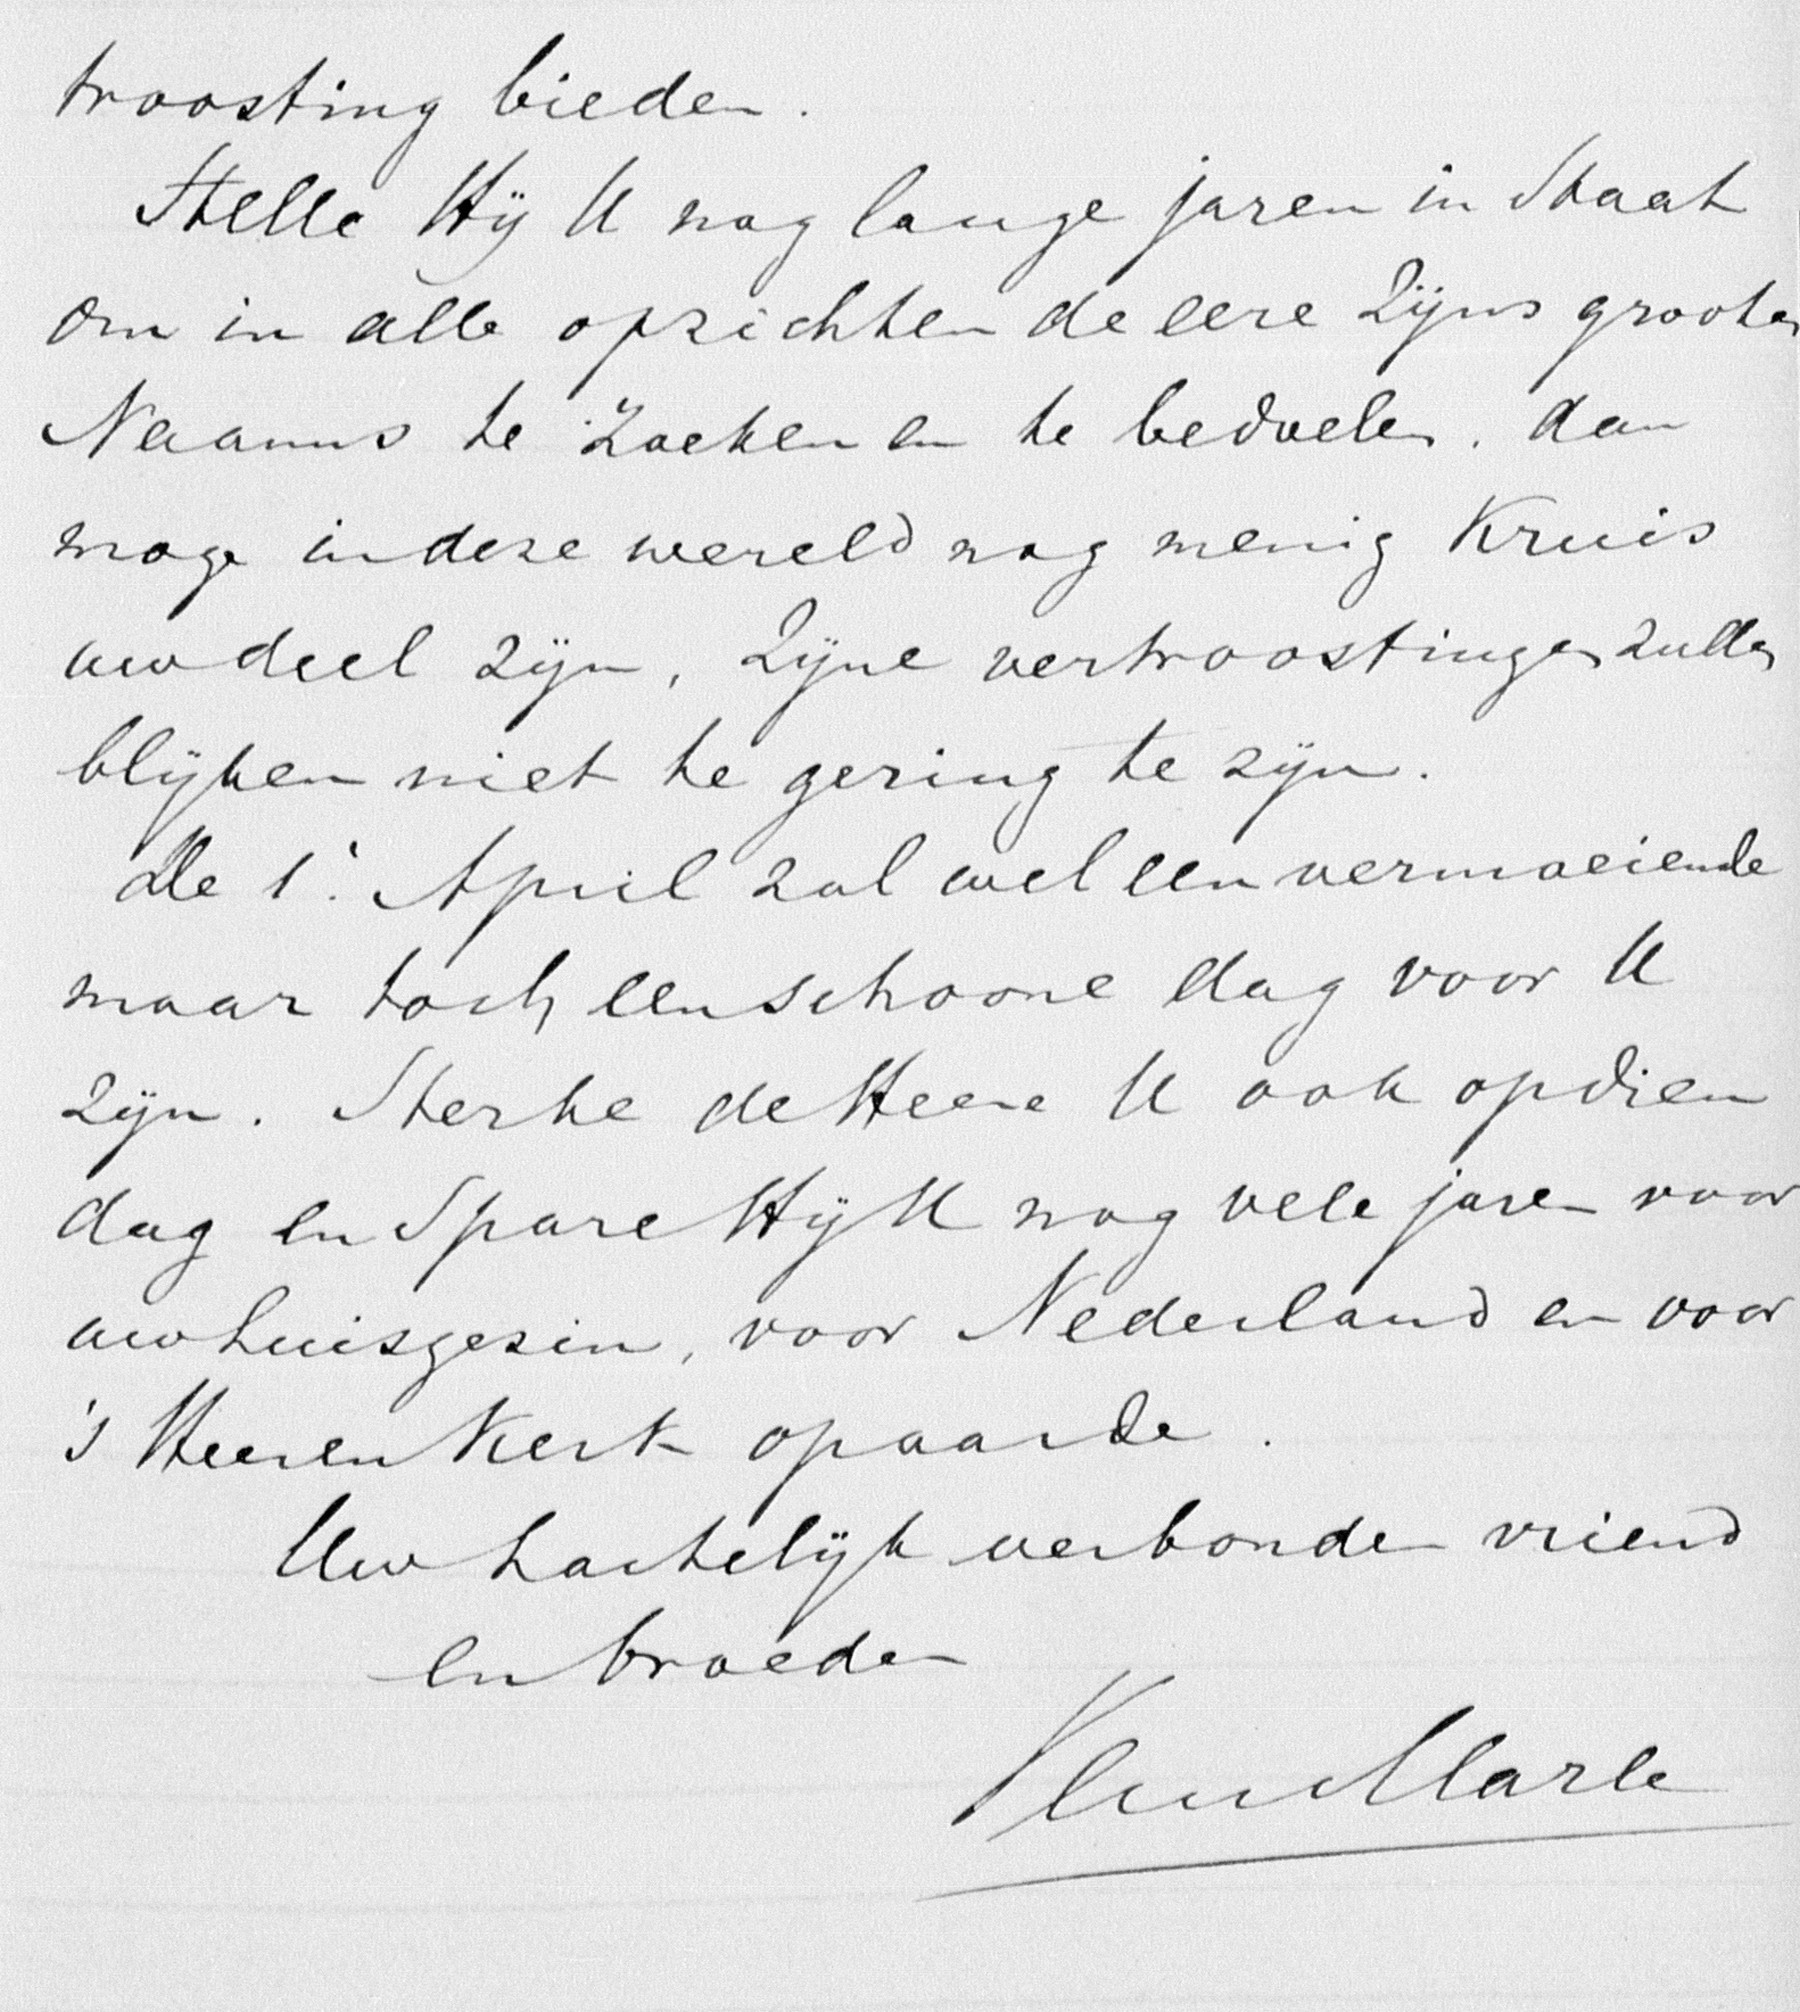 troosting bieden.
Stelle Hij U nog lange jaren in Staat
om in alle opzichten de eere Zijns grooten
Naams te zoeken en te bedoelen. dan
moge in deze wereld nog menig Kruis
uw deel zijn, Zijne vertroostingen zullen
blijken niet te gering te zijn.
De 1e April zal wel een vermoeiende
maar toch een schoone dag voor U
zijn. Sterke de Heere U ook op dien
dag en Spare Hij U nog vele jaren voor
uw huisgezin, voor Nederland en voor
's Heeren Kerk op aarde.
Uw hartelijk verbonden vriend
en broeder